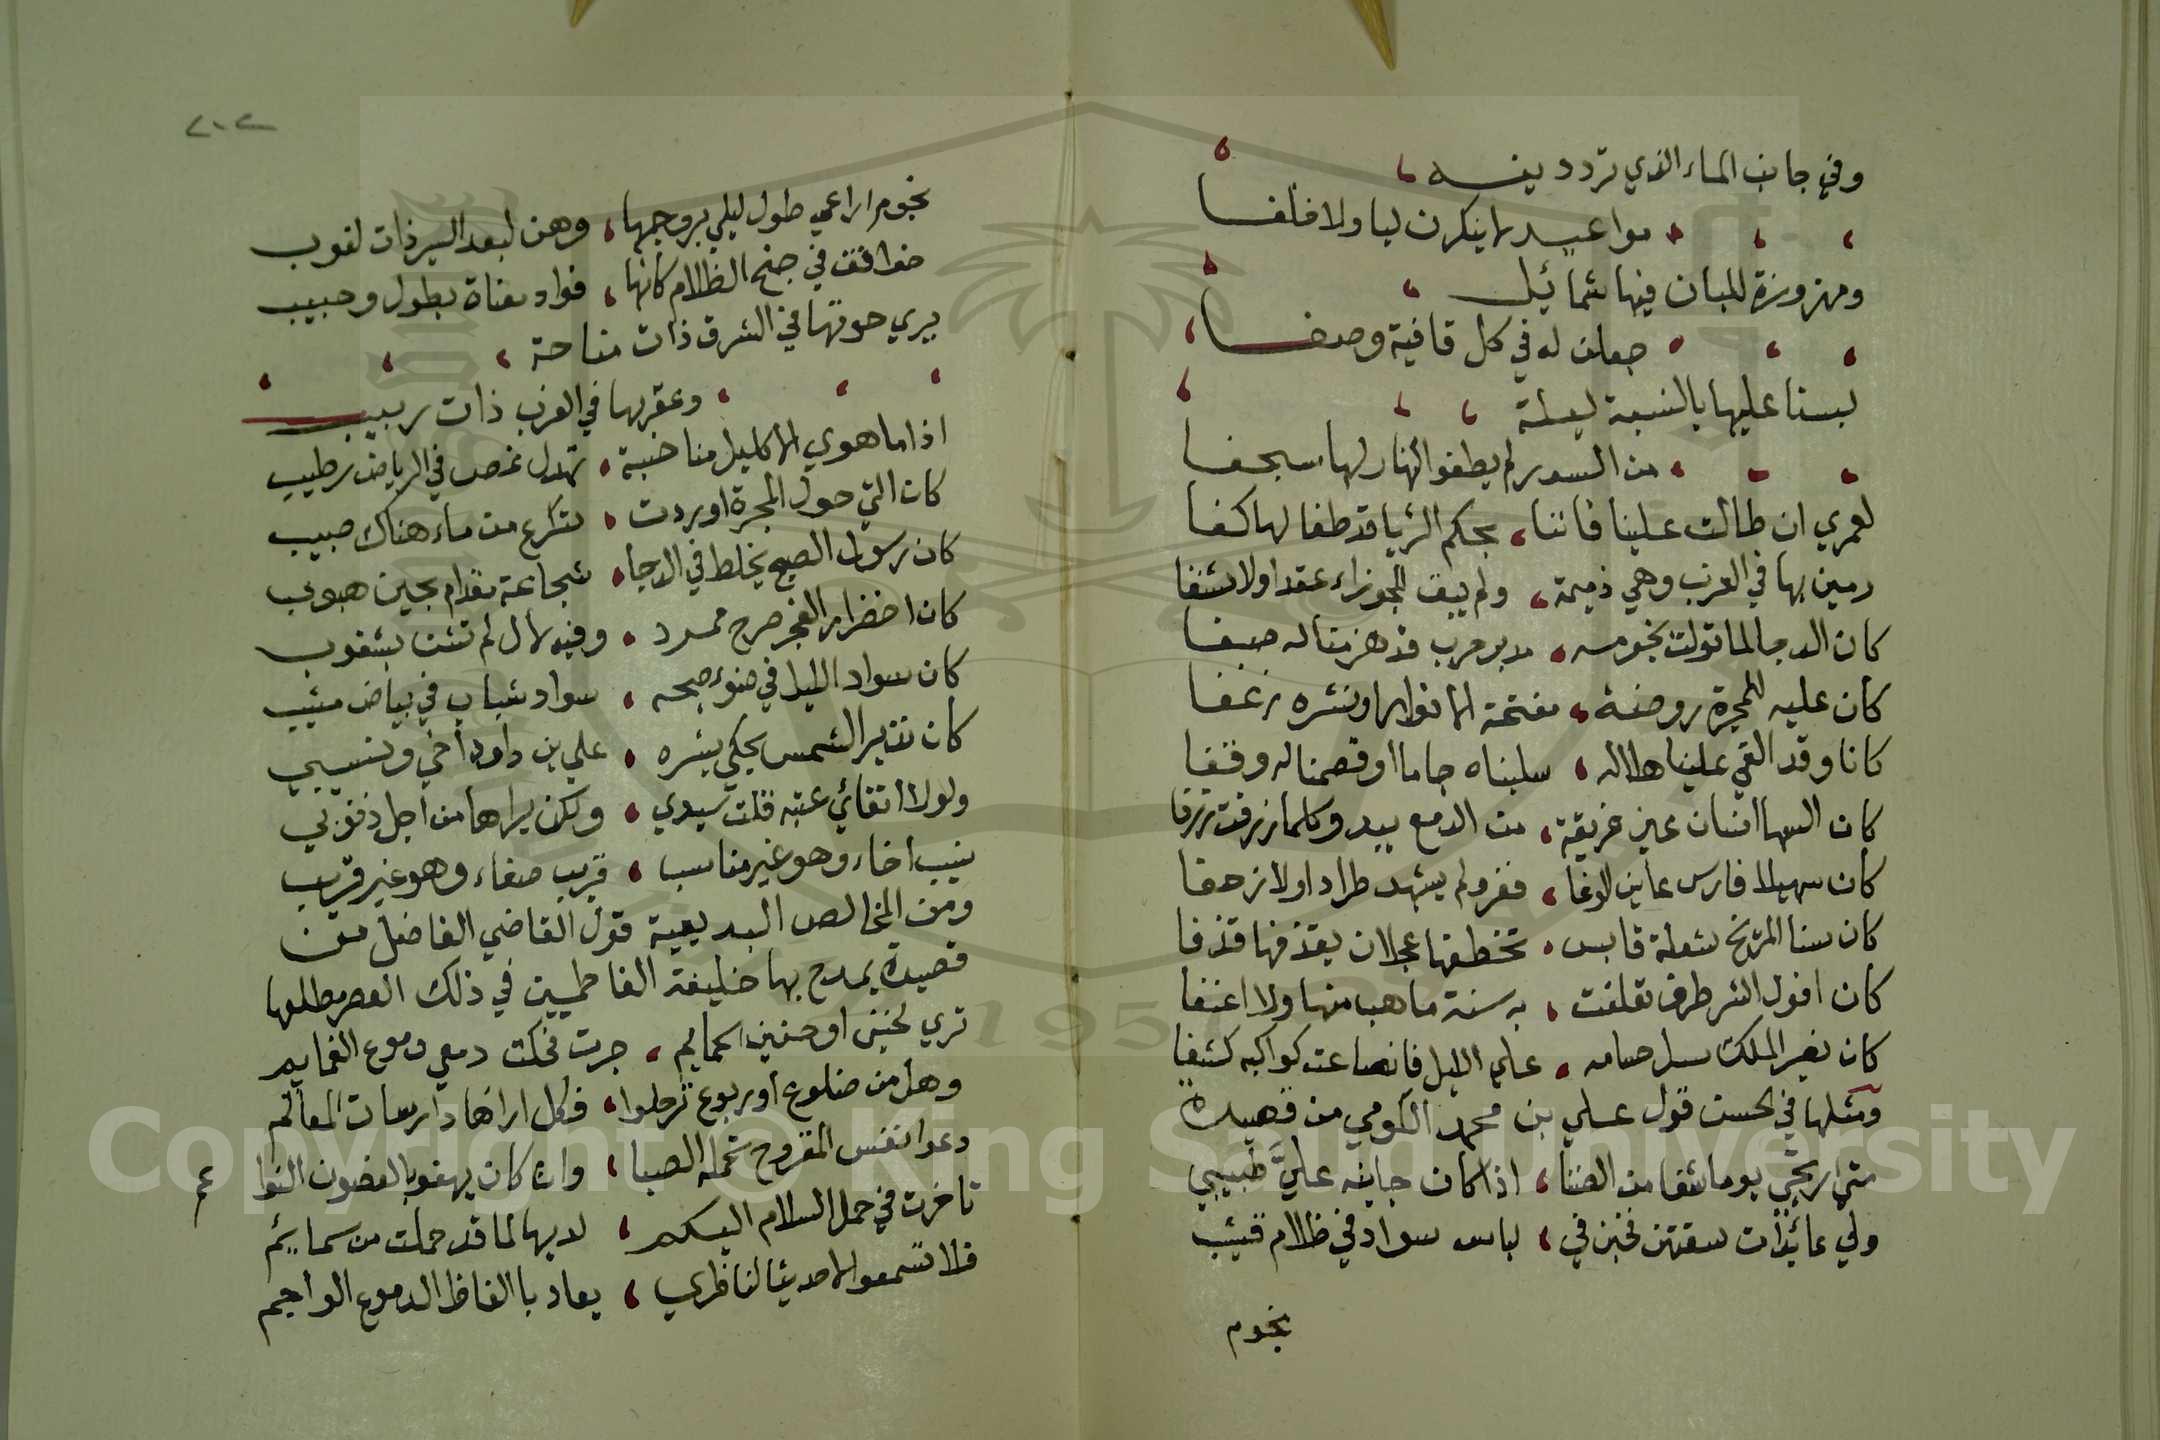 وفي جانب الماء الذي تردد ينسه
مواعيد لا ينكرن ليا ولا خلفا
ومهزوزة للبان فيها شمائيل
جعلن له في كل قافية وصفا
لبسنا عليها بالنسبة ليلة
من السور لم يطفو النهار لها سجفا
لعمري ان طالت علينا فاننا، بحكم الثريا قد طفا لها كفا
رمين بها في الغرب وهي ذميمة، ولم يبق للجوزاء عقدا ولا شنفا
كان الدجا لما تولت نجومه، مدبر حرب قد هزمنا له صفا
كان عليه للمجرة روضة، مفتحة الانوار او نثره زغفا
كانا وقد القي علينا هلاله، سلبناه جاما او قصمنا له وقفا
كان السها انسان عين غريقة، من الدمع يبدو كلما زرفت زرفا
كان سهيلا فارس عاين الوغا، ففر ولم يشهد طرادا ولا زحفا
كان سنا المريخ شعلة قابس، تخطفها عجلان يقذفها قذفا
كان افول النسر طرف تعلقت، به سنة ما هب منها ولا اغفا
كان نصير الملك سل حسامه، علي الليل فانصاعت كواكبه كشفا
ومثلها في الحسن قول علي بن محمد الكومي من قصيدة
متي ارتجي يوما شفا من الضنا، اذا كان جانيه علي طبيبي
ولي عائدات سقتهن فجئن في، لباس سواد في ظلام قشيب
نجوم
٢٠٢
نجوم اراعي طول ليلي بروجها، وهن لبعد السير ذات لغوب
خوافق في جنح الظلام كانها، فواد معناة بطول وحبيب
يري حوتها في الشرق ذات سناحة
وعقربها في الغرب ذات ربيب
اذا ما هوي الاكليل منا حنبة، تهدل غصن في الرياض رطيب
كان التي حول المجرة اوردت، لتكرع من ماء هناك صبيب
كان رسول الصبح يخلط في الدجا، شجاعة مقدام بجبن هيوب
كان اخضرار الفجر صرح ممرد، وفيه لال لم تشن بثقوب
كان سواد الليل في ضوء صبحه، سواد شباب في بياض مشيب
كان نذير الشمس يحكي ببشره، علي بن داود أخي ونسيبي
ولولا اتقائي عتبه قلت سيدي، ولكن يراها من أجل ذنوبي
نسيب اخاء وهو غير مناسب، قريب صفاء وهو غير قريب
ومن المخالص البديعية قول القاضي الفاضل من
قصيدة يمدح بها خليفة الفاطميين في ذلك العصر مطلعها
تري لحنيني او حنين الحمايم، جرت فحكت دمعي دموع الغمايم
وهل من ضلوع او ربوع ترحلوا، فكل اراها دارسات المعالم
دعوا نفس المقروح تحمله الصبا، وان كان يهفو بالغصون النواعم
تاخرت في حمل السلام اليكم، لديها لما قد حملت من سمائم
فلا تسمعوا الا حديثا لناظري، يعاد بالفاظ الدموع الواجم